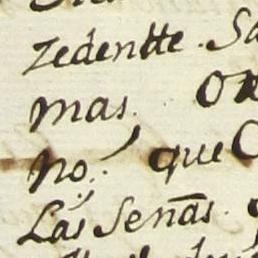 zedentte. Sa
mas. On
no. que
Las Senãs.